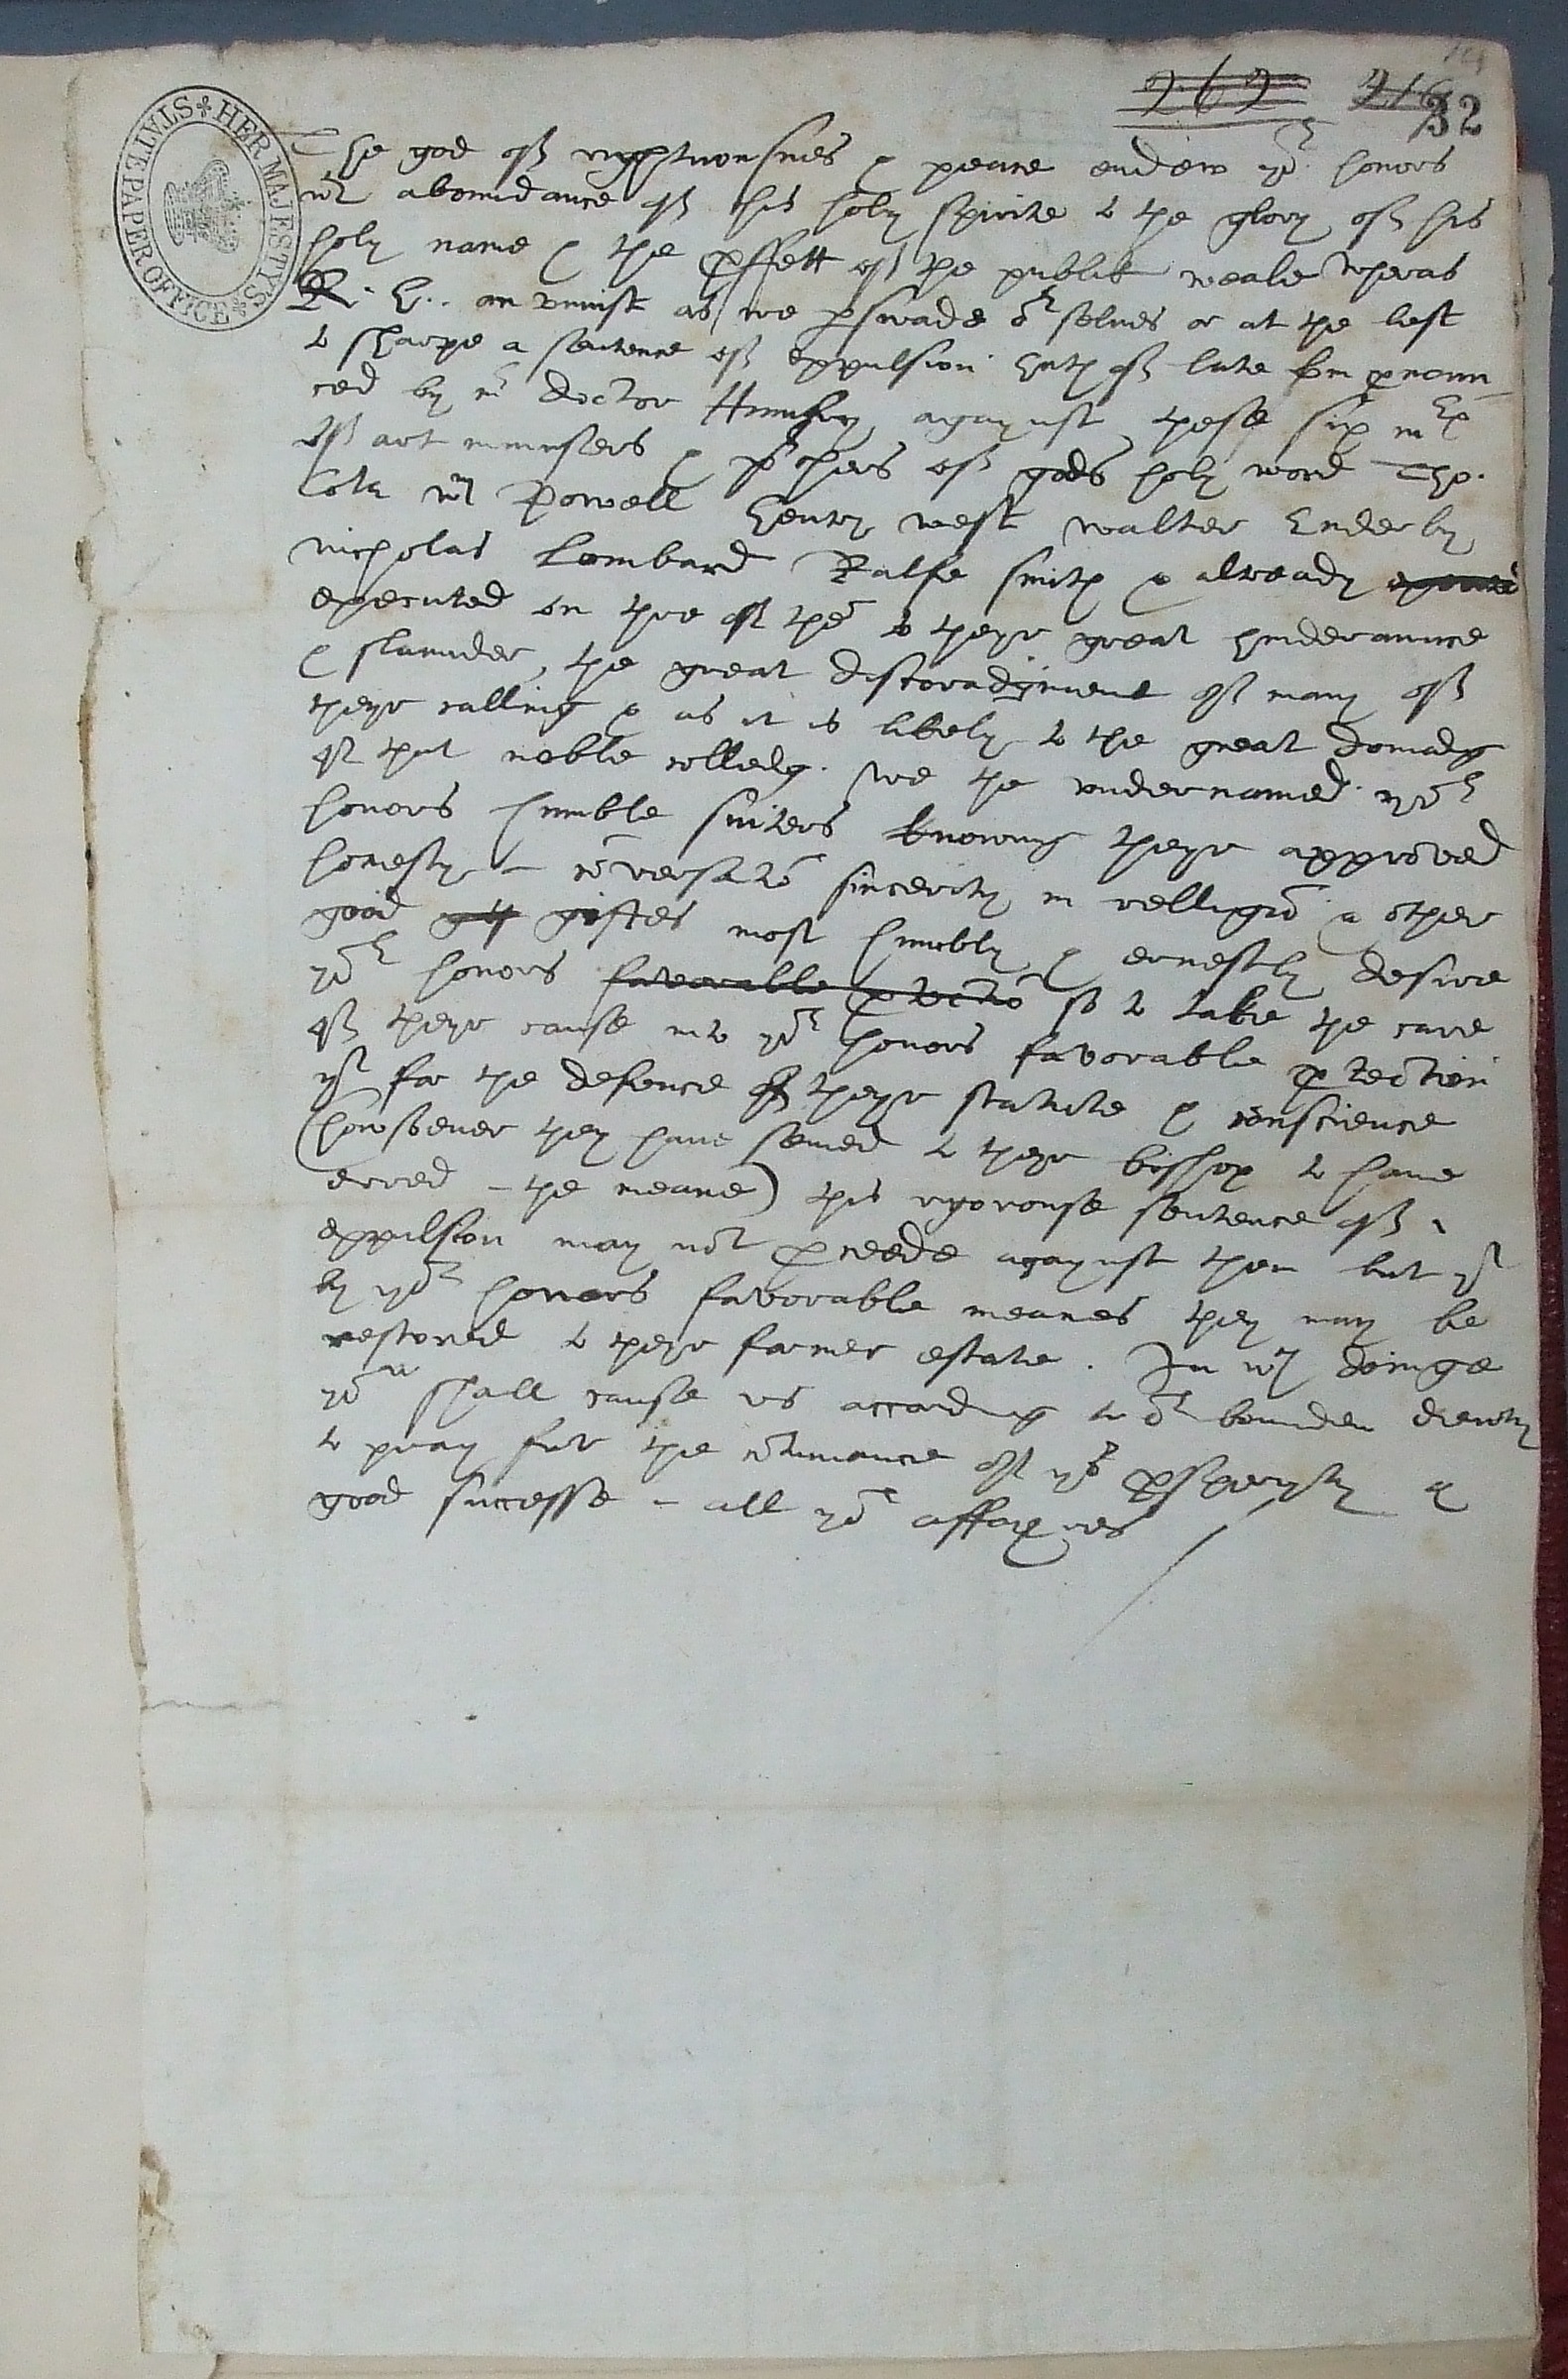 262 216
32
HER MAJESTY'S STATE PAPER OFFICE
The god off ryghtuousnes & peace endew yor honors
wt aboundance off his holy spirite to the glory off his
holy name & the pffett off the publik weale wheras
R. H. an uniust as we pswade or selves or at the lest
to sharpe a sentence off expulsion hath off late bin pronoun
ced by mr doctor Humfry agaynst these six mrs
off art ministers & prchers off gods holy word Tho.
Cole wm Powell Henry west walter Enderby
nicholas Lombard Ralfe smith & already
executed on thre off thē to theyr great hinderaunce
& slaunder, the great discoradgment off many off
theyr calling & as it is likely to the great domadg
off that noble colledg. we the undernamed yor
honors humble suiters knowing theyr approved
honesty - cōversatiō sincerity in relligiō & other
good giftes most humbly & ernestly desire
yor honors favorable ptectiō so to take the care
off theyr cause into yor honors favorable ptection
yt for the defence off theyr statute & conscience
(howsoever they have semed to theyr bisshop to have
erred - the meane) this rygorouse sentence off
expulsion may not pceede agaynst them but yt
by yor honors favorable meanes they may be
restored to theyr former estate. In wch doinge
you shall cause us according to or bounden diewty
to pray for the cōtinuance off yor psperyty &
good successe - all yor affayres